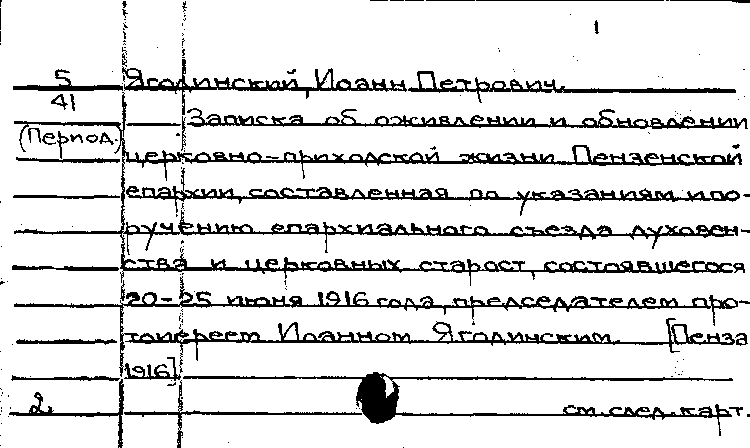 1
5 Ягодинский, Иоанн Петрович.
41 Записка об оживлении и обновлении
(Период.) церковно-приходской жизни Пензенской
епархии, составленная по указаниям и по-
ручению епархиального съезда духовен-
ства и церковных старост, состоявшегося
20-25 июня 1916 года, председателем про-
тоиереем Иоанном Ягодинским. [Пенза
1916]
2. см. след. карт.